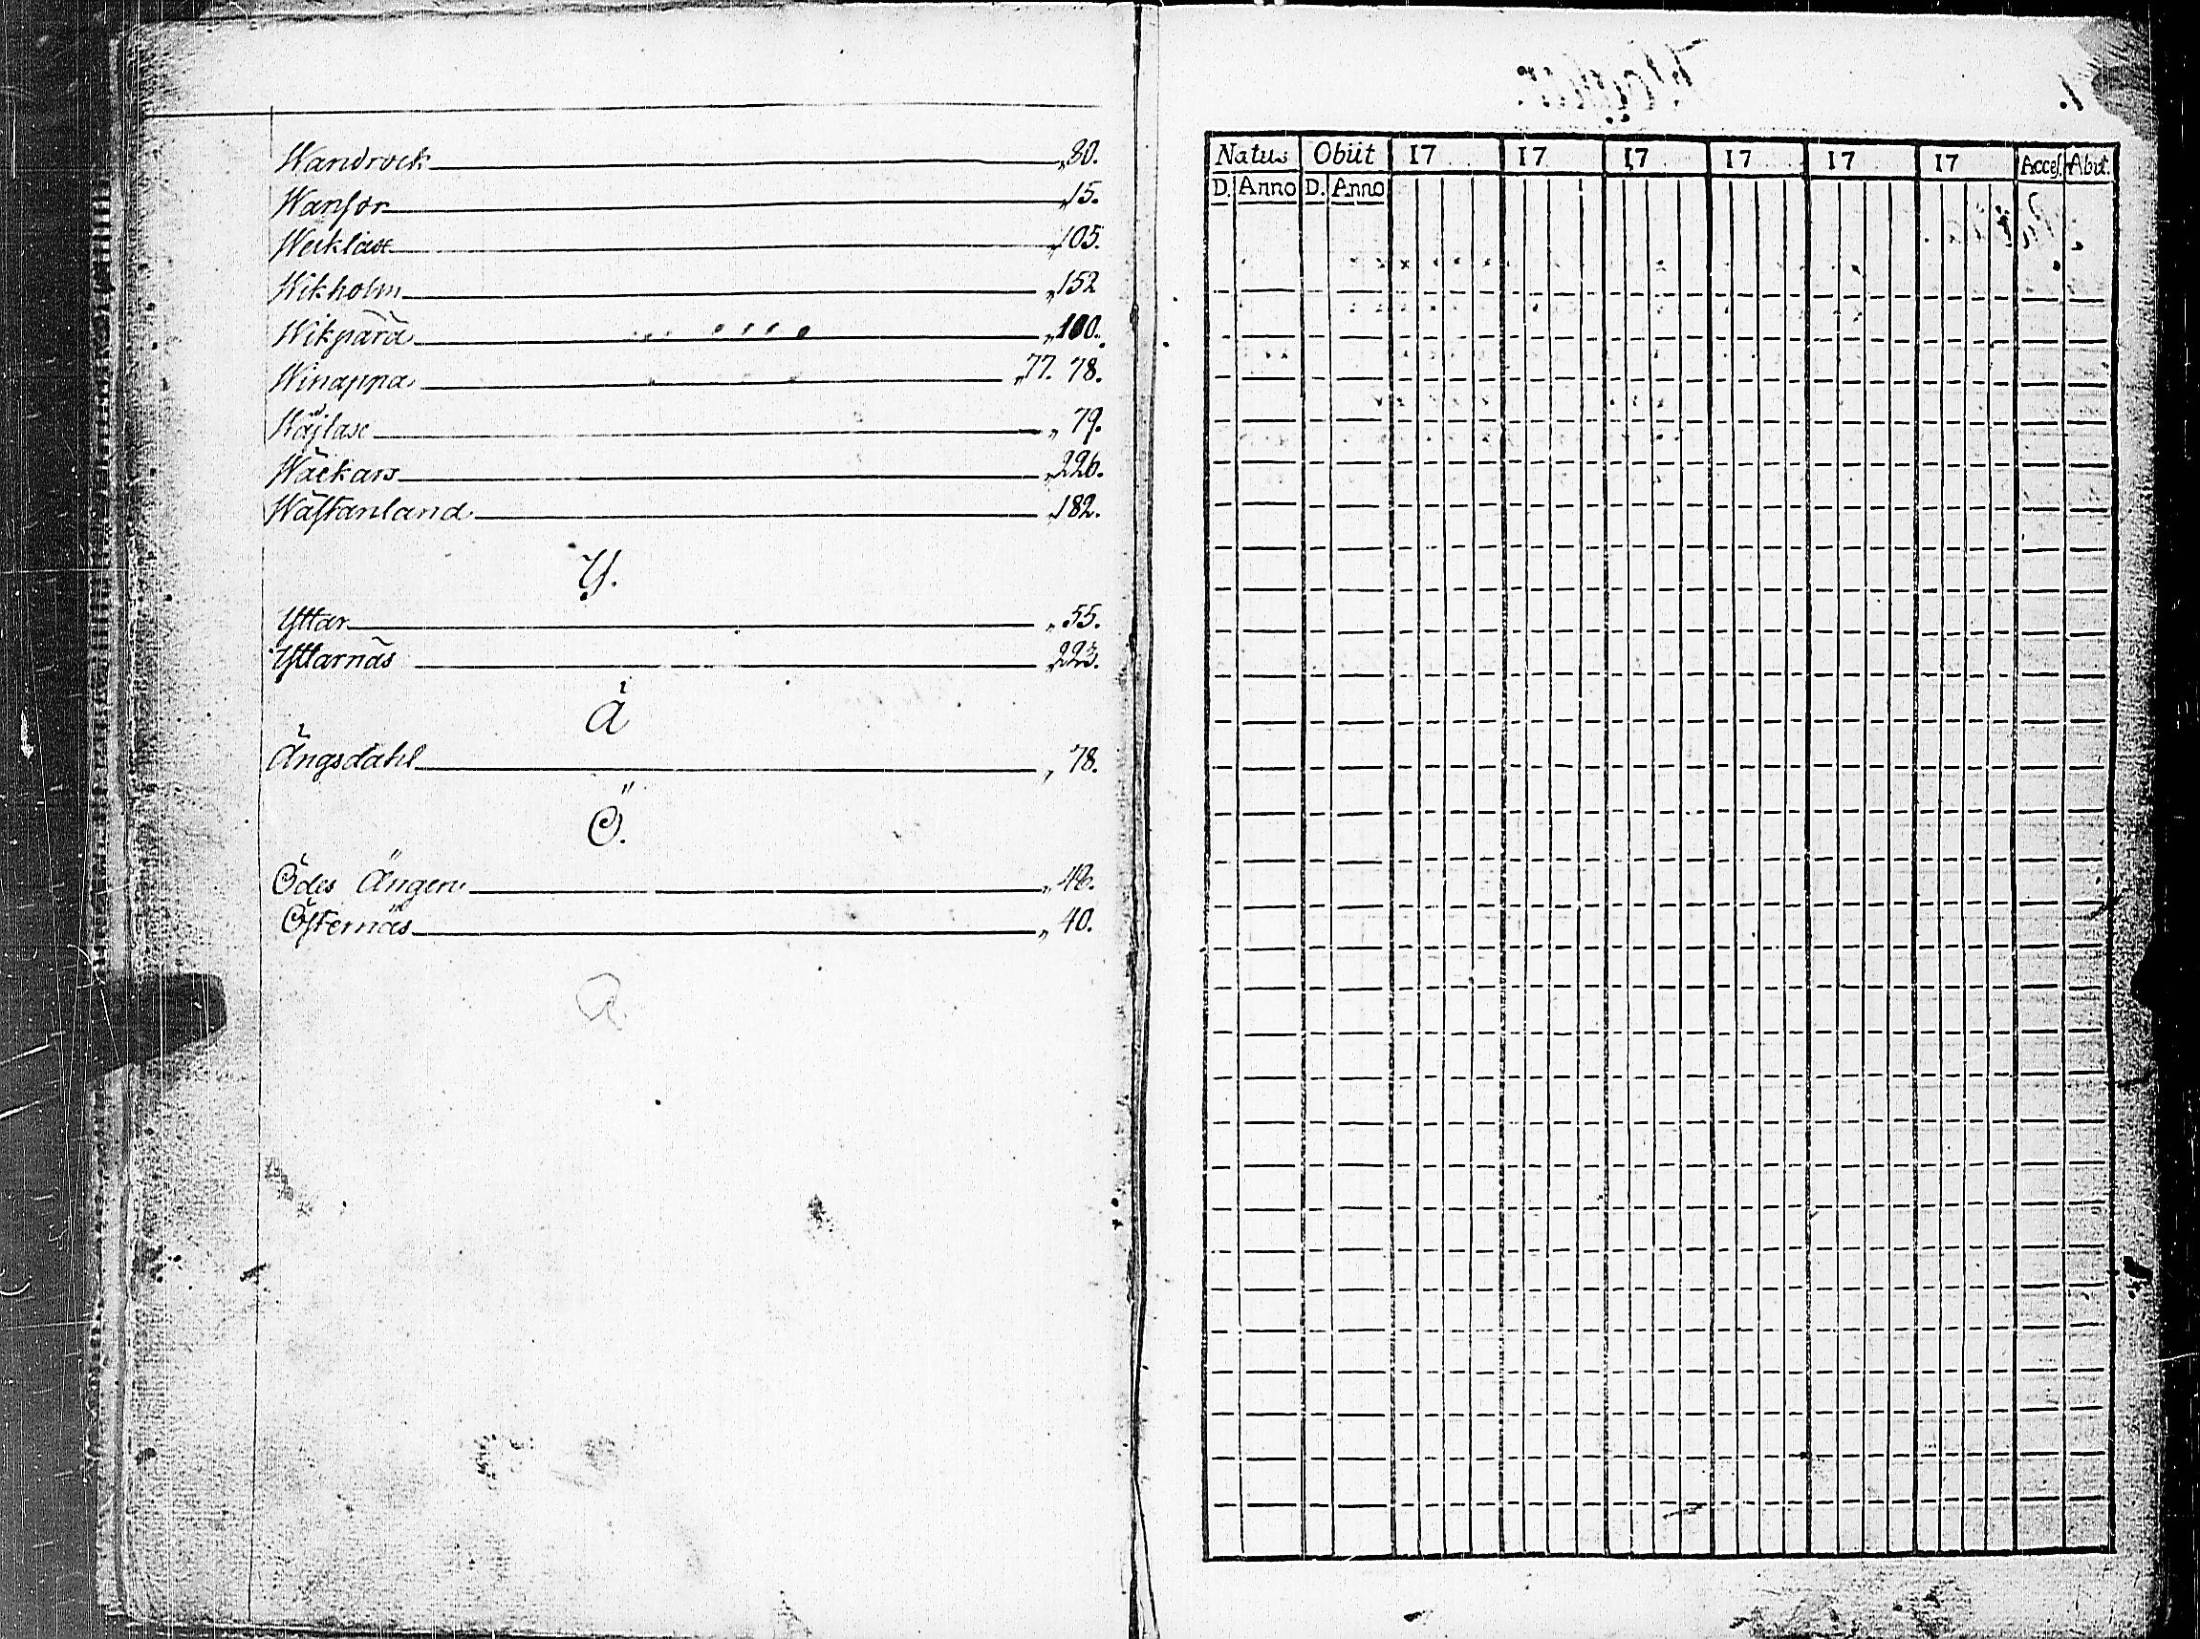 Wandrock „ 80.
Wanfor „ 15.
Wecklax „ 105.
Wikholm „ 152
Wikpärä „ 100.
Winappa „ 77. 78.
Wäjlax „ 79.
Wäckars „ 226.
Wästanland „ 182.
Y.
Yttar „ 55.
Yttarnäs „ 223.
Ä
Ängsdahl „ 78.
Ö.
Ödes Ängen „ 48.
Östernäs „ 40.
Natus Obiit 17 17 17 17 17 17 Access. Abiit.
D. Anno D. Anno